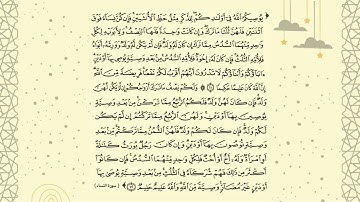 ﴿ يُوصِيكُمُ ٱللَّهُ فِىٓ أَوْلَٰدِكُمْ لِلذَّكَرِ مِثْلُ حَظِّ ٱلْأُنثَيَيْنِ فَإِن كُنَّ نِسَآءً فَوْقَ
ٱثْنَتَيْنِ فَلَهُنَّ ثُلُثَا مَا تَرَكَ وَإِن كَانَتْ وَٰحِدَةً فَلَهَا ٱلنِّصْفُ وَلِأَبَوَيْهِ لِكُلِّ
وَٰحِدٍ مِّنْهُمَا ٱلسُّدُسُ مِمَّا تَرَكَ إِن كَانَ لَهُۥ وَلَدٌ فَإِن لَّمْ يَكُن لَّهُۥ وَلَدٌ وَوَرِثَهُۥٓ أَبَوَاهُ
فَلِأُمِّهِ ٱلثُّلُثُ فَإِن كَانَ لَهُۥٓ إِخْوَةٌ فَلِأُمِّهِ ٱلسُّدُسُ مِنۢ بَعْدِ وَصِيَّةٍ يُوصِى بِهَآ أَوْ دَيْنٍ
ءَابَآؤُكُمْ وَأَبْنَآؤُكُمْ لَا تَدْرُونَ أَيُّهُمْ أَقْرَبُ لَكُمْ نَفْعًا فَرِيضَةً مِّنَ ٱللَّهِ
إِنَّ ٱللَّهَ كَانَ عَلِيمًا حَكِيمًا ۝١١ وَلَكُمْ نِصْفُ مَا تَرَكَ أَزْوَٰجُكُمْ إِن لَّمْ يَكُن لَّهُنَّ
وَلَدٌ فَإِن كَانَ لَهُنَّ وَلَدٌ فَلَكُمُ ٱلرُّبُعُ مِمَّا تَرَكْنَ مِنۢ بَعْدِ وَصِيَّةٍ
يُوصِينَ بِهَآ أَوْ دَيْنٍ وَلَهُنَّ ٱلرُّبُعُ مِمَّا تَرَكْتُمْ إِن لَّمْ يَكُن
لَّكُمْ وَلَدٌ فَإِن كَانَ لَكُمْ وَلَدٌ فَلَهُنَّ ٱلثُّمُنُ مِمَّا تَرَكْتُم مِّنۢ بَعْدِ
وَصِيَّةٍ تُوصُونَ بِهَآ أَوْ دَيْنٍ وَإِن كَانَ رَجُلٌ يُورَثُ كَلَٰلَةً
أَوِ ٱمْرَأَةٌ وَلَهُۥٓ أَخٌ أَوْ أُخْتٌ فَلِكُلِّ وَٰحِدٍ مِّنْهُمَا ٱلسُّدُسُ فَإِن كَانُوٓا۟
أَكْثَرَ مِن ذَٰلِكَ فَهُمْ شُرَكَآءُ فِى ٱلثُّلُثِ مِنۢ بَعْدِ وَصِيَّةٍ يُوصَىٰ بِهَآ
أَوْ دَيْنٍ غَيْرَ مُضَآرٍّ وَصِيَّةً مِّنَ ٱللَّهِ وَٱللَّهُ عَلِيمٌ حَلِيمٌ ۝١٢ ﴾ [سورة النساء]